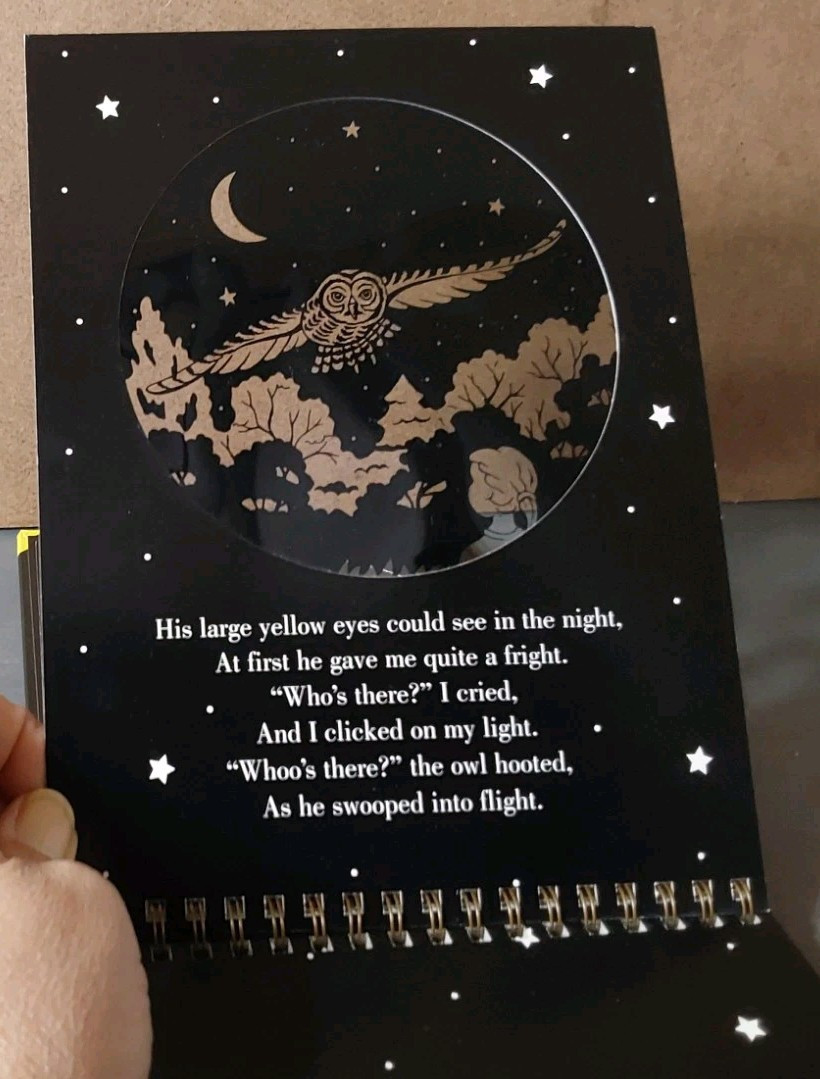 His large yellow eyes could see in the night,
At first he gave me quite a fright.
“Who’s there?” I cried,
And I clicked on my light.
“Whoo’s there?” the owl hooted,
As he swooped into flight.